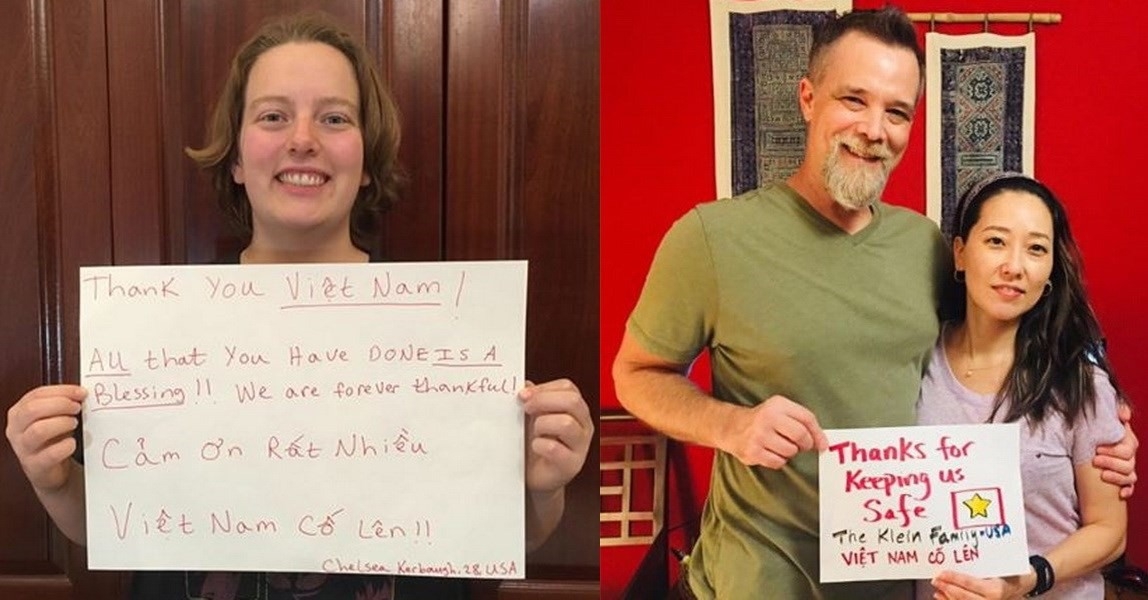 Thank You Việt Nam!
All that you Have DONE IS A
Blessing!! We are forever thankful!
Cảm ơn Rất Nhiều
Việt Nam Cố Lên!!
Chelsea Korbaugh. 28 USA
Thanks for
Keeping us
Safe
The Klein Family • USA
VIỆT NAM CỐ LÊN